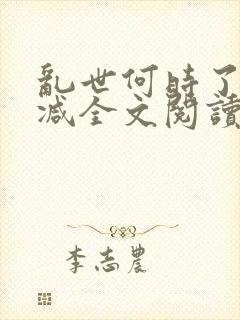 亂世何時了
減全文閱讀
李志農